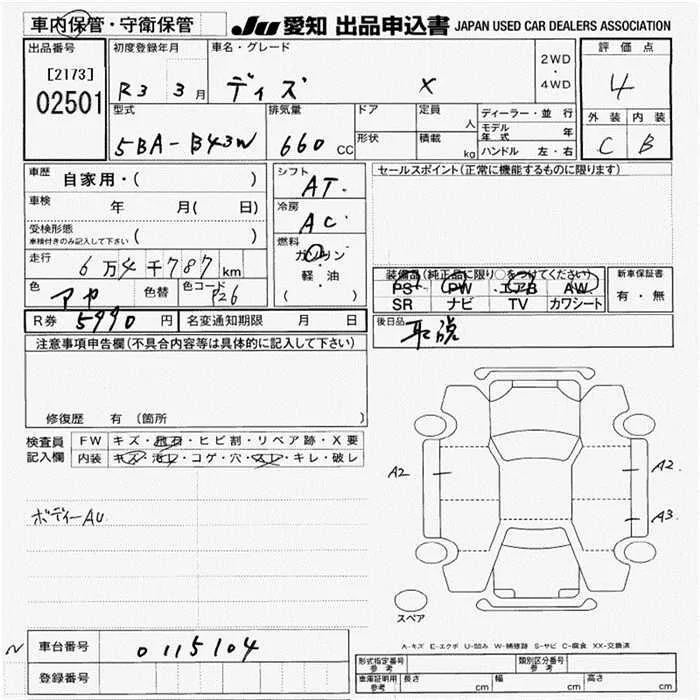 車内保管・守衛保管 JU 愛知 出品申込書 JAPAN USED CAR DEALERS ASSOCIATION
出品番号 初度登録年月 車名・グレード 2WD・4WD 評価点
[2173] R3 3月 X 4
02501
型式 排気量 ドア 定員 人 ディーラー・並行 外装 内装
5BA-B43W 660 CC 形状 積載 kg モデル年式 年 C B
ハンドル 左・右
車歴 自家用・( ) シフト AT セールスポイント(正常に機能するものに限ります)
車検 年 月( 日) 冷房 AC
受検形態 車検付きのみ記入して下さい ( ) 燃料 ガソリン
走行 6万4千787km 軽・油 装備品(純正品に限り○をつけてください) 新車保証書
色 色替 色コード ( ) PS PW エアB AW 有・無
SR ナビ TV カワシート
R券 5990円 名変通知期限 月 日 後日品 取説
注意事項申告欄(不具合内容等は具体的に記入して下さい)
修復歴 有 (箇所 )
検査員 FW キズ・飛石・ヒビ割・リペア跡・X要
記入欄 内装 キズ・汚レ・コゲ・穴・スレ・キレ・破レ
A2 A2
A3
ボディーAU
スペア
N 車台番号 0115104
登録番号
A-キズ E-エクボ U-凹み W-補修跡 S-サビ C-腐食 XX-交換済
形式指定番号 参考 類別区分番号 参考
車庫証明用 参考 長さ cm 幅 cm 高さ cm